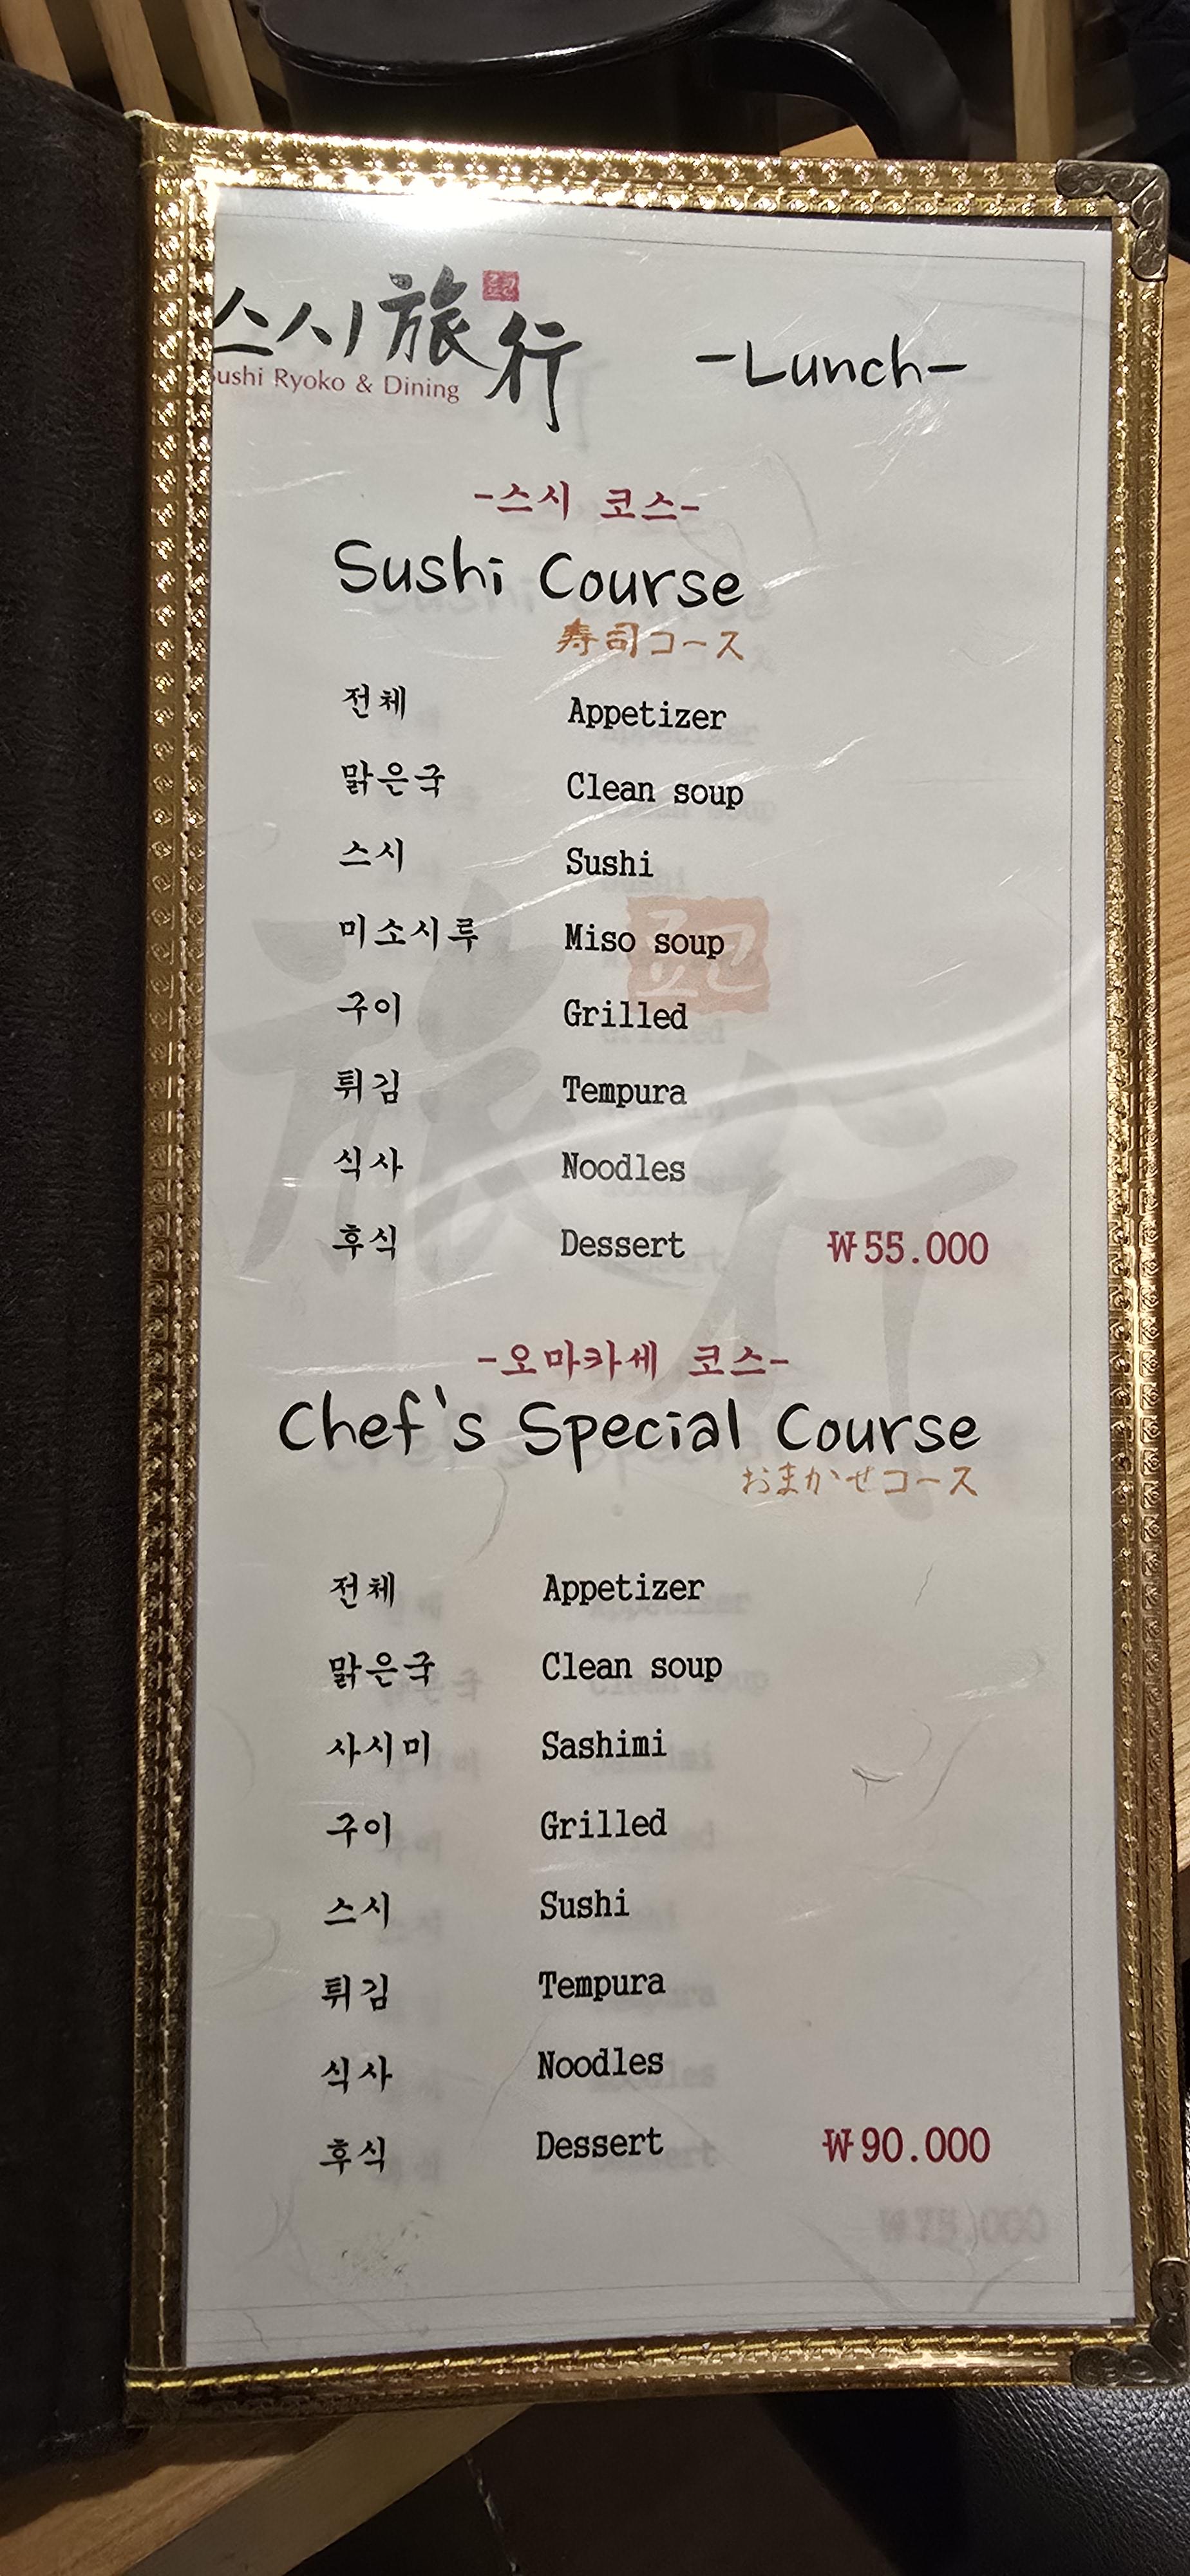 스시旅行
Sushi Ryoko & Dining
료코
-Lunch-
-스시 코스-
Sushi Course
寿司コース
전체 Appetizer
맑은국 Clean soup
스시 Sushi
미소시루 Miso soup
료코
구이 Grilled
튀김 Tempura
식사 Noodles
후식 Dessert ₩55.000
旅行
-오마카세 코스-
Chef's Special Course
おまかせコース
전체 Appetizer
맑은국 Clean soup
사시미 Sashimi
구이 Grilled
스시 Sushi
튀김 Tempura
식사 Noodles
후식 Dessert ₩90.000